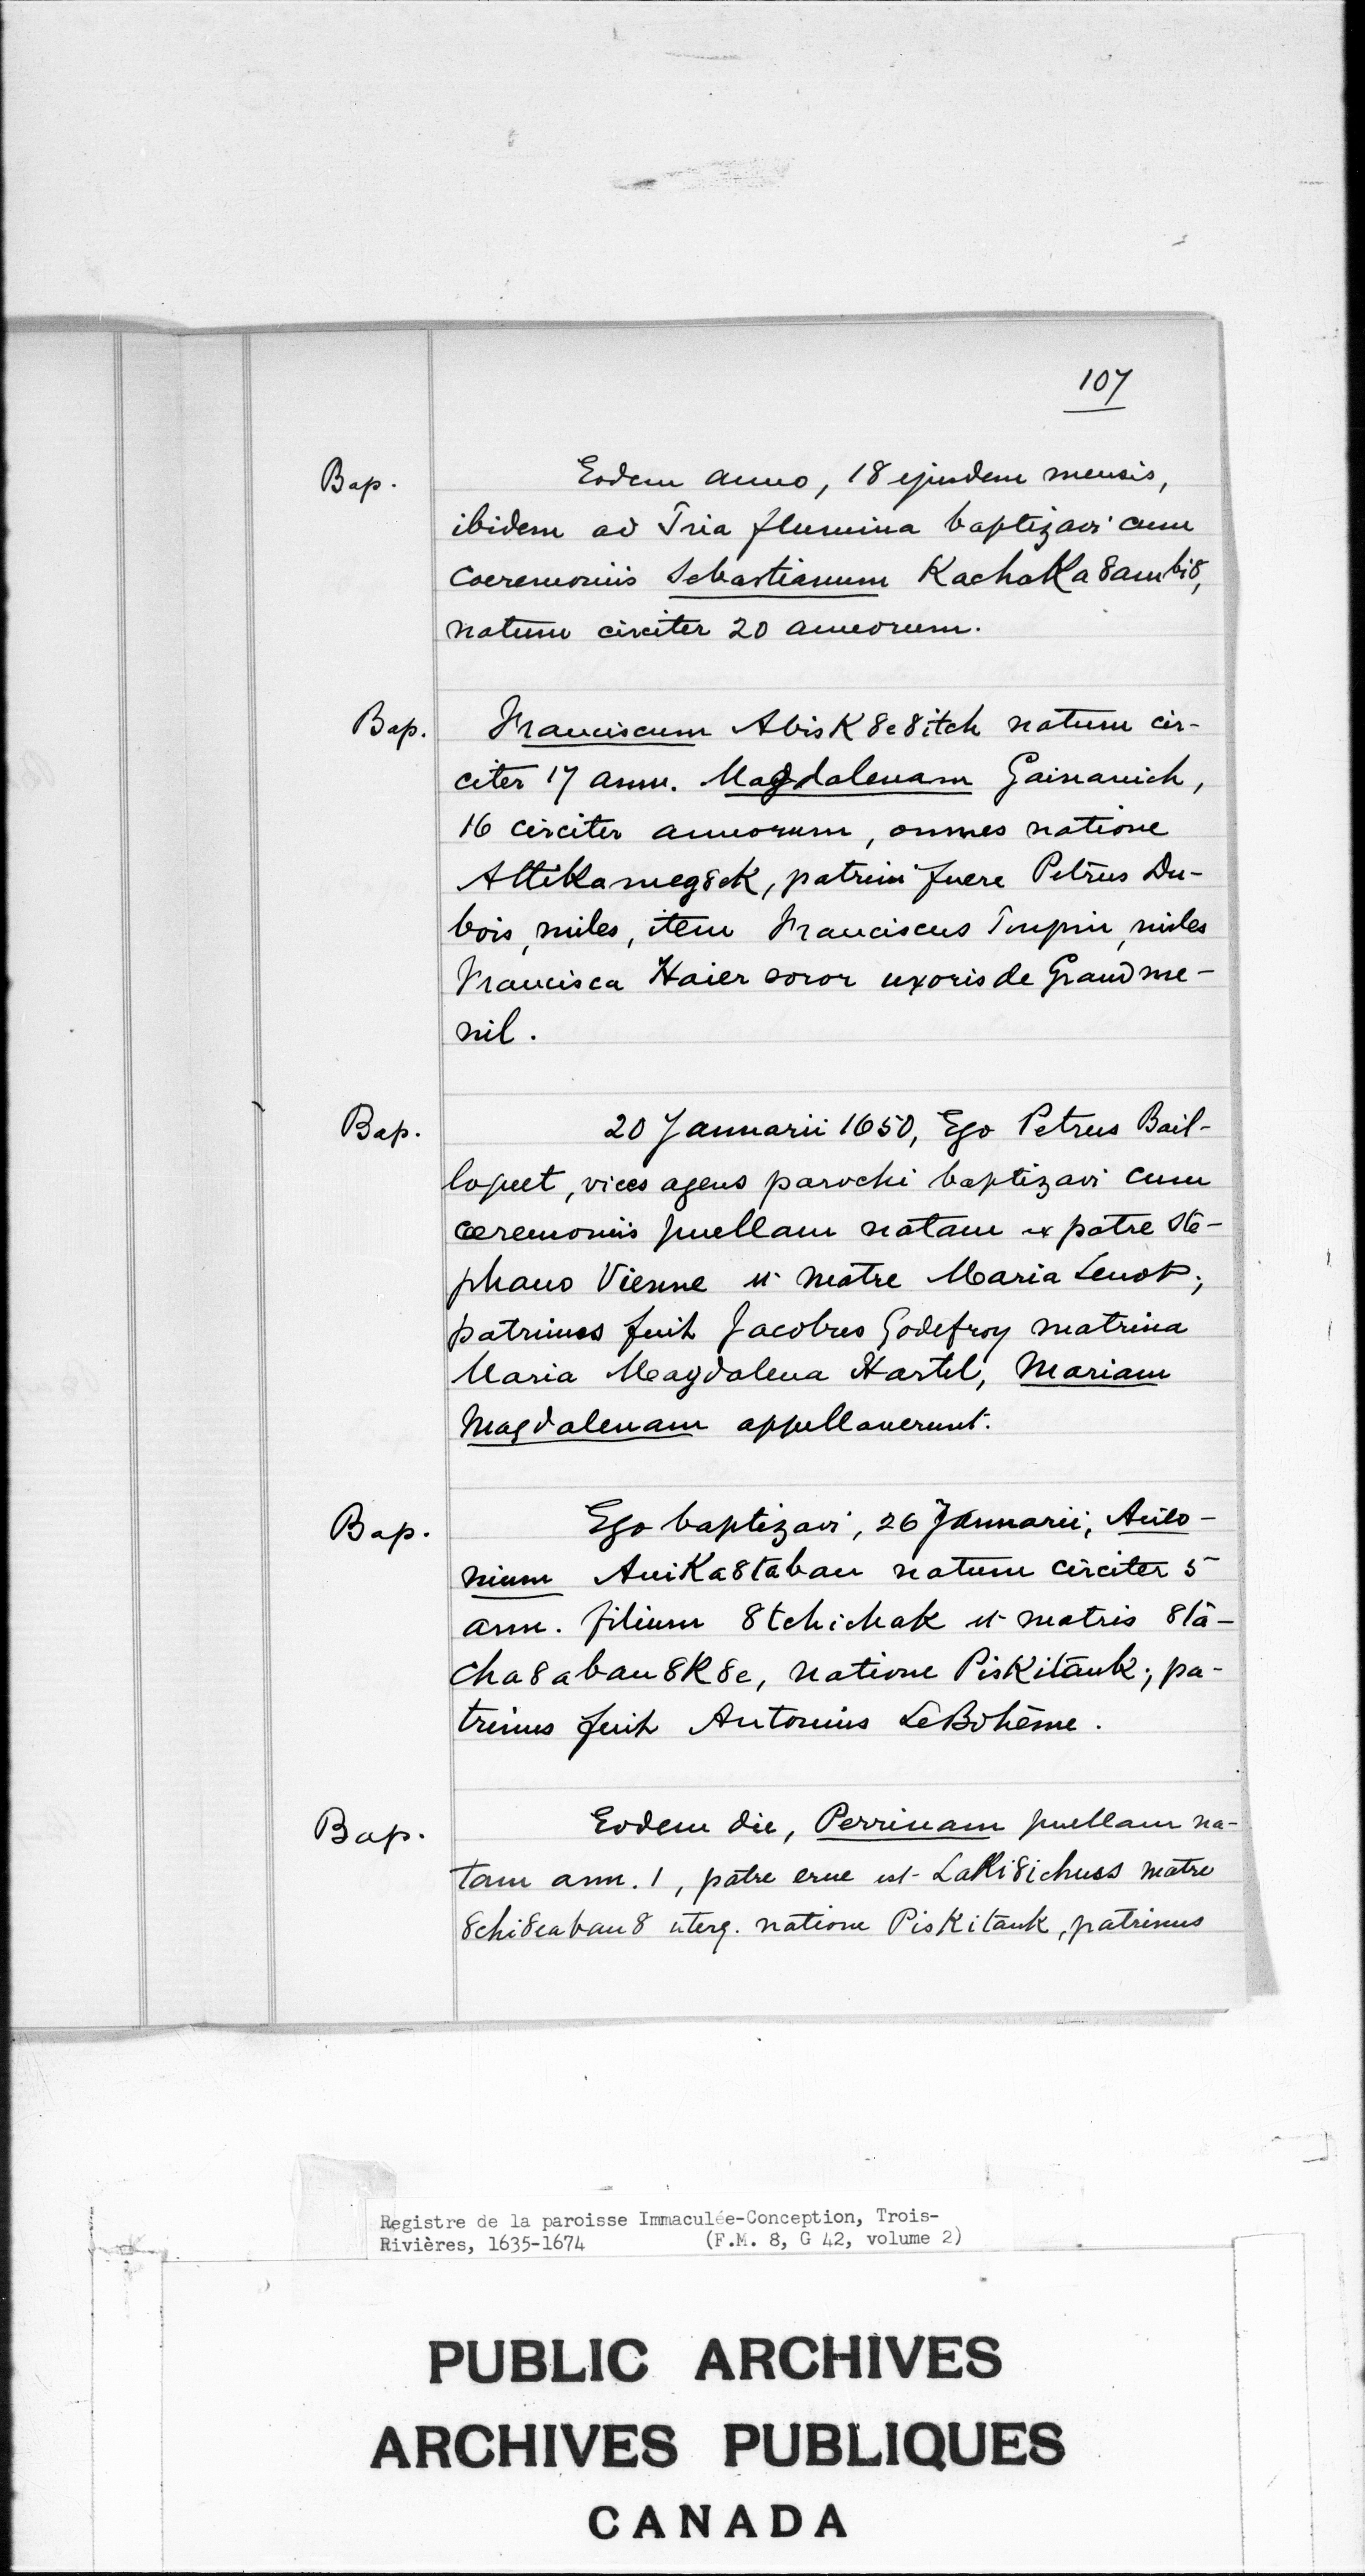 107
Bap. Eodem anno, 18 ejusdem mensis,
ibidem ad Tria flumina baptizavi cum
coeremoniis Sebastianum KachaKa8ambi8,
natum circiter 20 annorum.
Bap. Franciscum AbisK8e8itch natum cir-
citer 17 ann. Magdalenam Gainanich,
16 circiter annorum, omnes natione
AttiKameg8eK, patrini fuere Petrus Du-
bois, miles, item Franciscus Toupin, miles
Francisca Haier soror uxoris de Grandme-
nil.
Bap. 20 Januarii 1650, Ego Petrus Bail-
loquet, vices agens parochi baptizavi cum
ceremoniis puellam natam ex patre Ste-
phano Vienne et matre Maria Lenot;
patrinus fuit Jacobus Godefroy matrina
Maria Magdalena Hartel, Mariam
Magdalenam appellaverunt.
Bap. Ego baptizavi, 26 Januarii, Anto-
nium AniKa8taban natum circiter 5
ann. filium 8tchichak et matris 8ta-
cha8aban8K8e, natione PisKitank; pa-
trinus fuit Antonius LeBohême.
Bap. Eodem die, Perrinam puellam na-
tam ann. 1, patre est LaKi8ichuss matre
8chi8eaban8 uterq. natione PisKitank, patrinus
Registre de la paroisse Immaculée-Conception, Trois-
Rivières, 1635-1674 (F.M. 8, G 42, volume 2)
PUBLIC ARCHIVES
ARCHIVES PUBLIQUES
CANADA